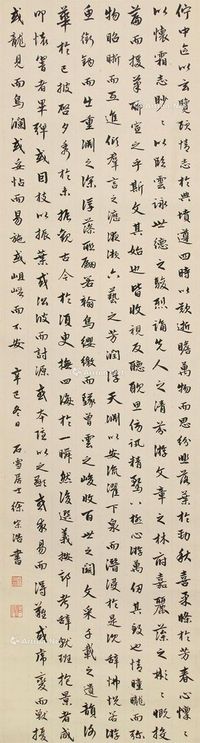 佇中區以玄覽頤情志於典墳遵四時以歎逝瞻萬物而思紛悲落葉於勁秋喜柔條於芳春心懍懍
以懷霜志眇眇以臨雲詠世德之駿烈誦先人之清芬游文章之林府嘉麗藻之彬彬慨投
篇而援筆聊宣之乎斯文其始也皆收視反聽耽思傍訊精鶩八極心游萬仞其致也情曈曨而彌
物昭晰而互進傾羣言之瀝液漱六藝之芳潤浮天淵以安流濯下泉而潛浸於是沈辭怫悅若游
魚銜鉤而出重淵之深浮藻聯翩若翰鳥纓繳而墜曾雲之峻收百世之闕文采千載之遺韻謝
華於已披啓夕秀於未振觀古今於須臾撫四海於一瞬然後選義按部考辭就班抱景者咸
叩懷響者畢彈或因枝以振葉或沿波而討源或本隱以之顯或求易而得難或虎變而獸擾
或龍見而鳥瀾或妥帖而易施或岨峿而不安 辛巳冬日 石雪居士徐宗浩書